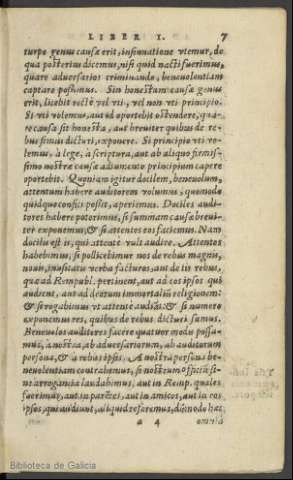 LIBER I. 7
turpe genus causæ erit, insinuatione vtemur, de
qua posterius dicemus, nisi quid nacti fuerimus,
quare aduersarios criminando, beneuolentiam
captare possimus. Sin honestum causæ genus
erit, licebit recte vel vti, vel non vti principio.
Si vti volemus, aut id oportebit ostendere, qua-
re causa sit honesta, aut breuiter quibus de re-
bus simus dicturi, exponere. Si principio vti no-
lemus, à lege, à scriptura, aut ab aliquo firmis-
simo nostræ causæ adiumento principium capere
oportebit. Quoniam igitur docilem, beneuolum,
attentum habere auditorem volumus, quomodo
quidque confici possit, aperiemus. Dociles audi-
tores habere poterimus, si summam causæ breui-
ter exponemus, & si attentos eos faciemus. Nam
docilis est is, qui attente vult audire. Attentos
habebimus, si pollicebimur nos de rebus magnis,
nouis, inusitatis verba facturos, aut de iis rebus,
quæ ad Rempubl. pertinent, aut ad eos ipsos qui
audient, aut ad deorum immortaliũ religionem:
& si rogabimus vt attente audiãt: & si numero
exponemus res, quibus de rebus dicturi sumus.
Beneuolos auditores facere quatuor modis possu-
mus, à nostra, ab aduersariorum, ab auditorum
persona, & à rebus ipsis. A nostra persona be-
neuolentiam contrahemus, si nostrum officiũ si-
ne arrogantia laudabimus, aut in Remp. quales
fuerimus, aut in parẽtes, aut in amicos, aut in eos
ipsos, qui audiunt, aliquid referemus, dũmodo hæc
a 4 omnia
Biblioteca de Galicia